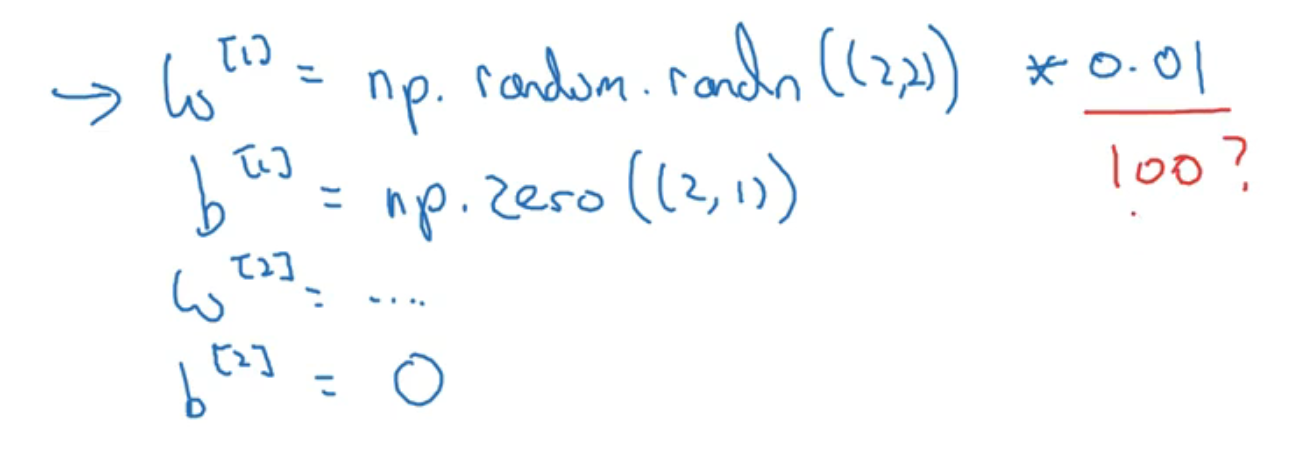 → W^[1] = np.random.randn((2,2)) * 0.01
100?
b^[1] = np.zero((2,1))
W^[2] = ....
b^[2] = 0